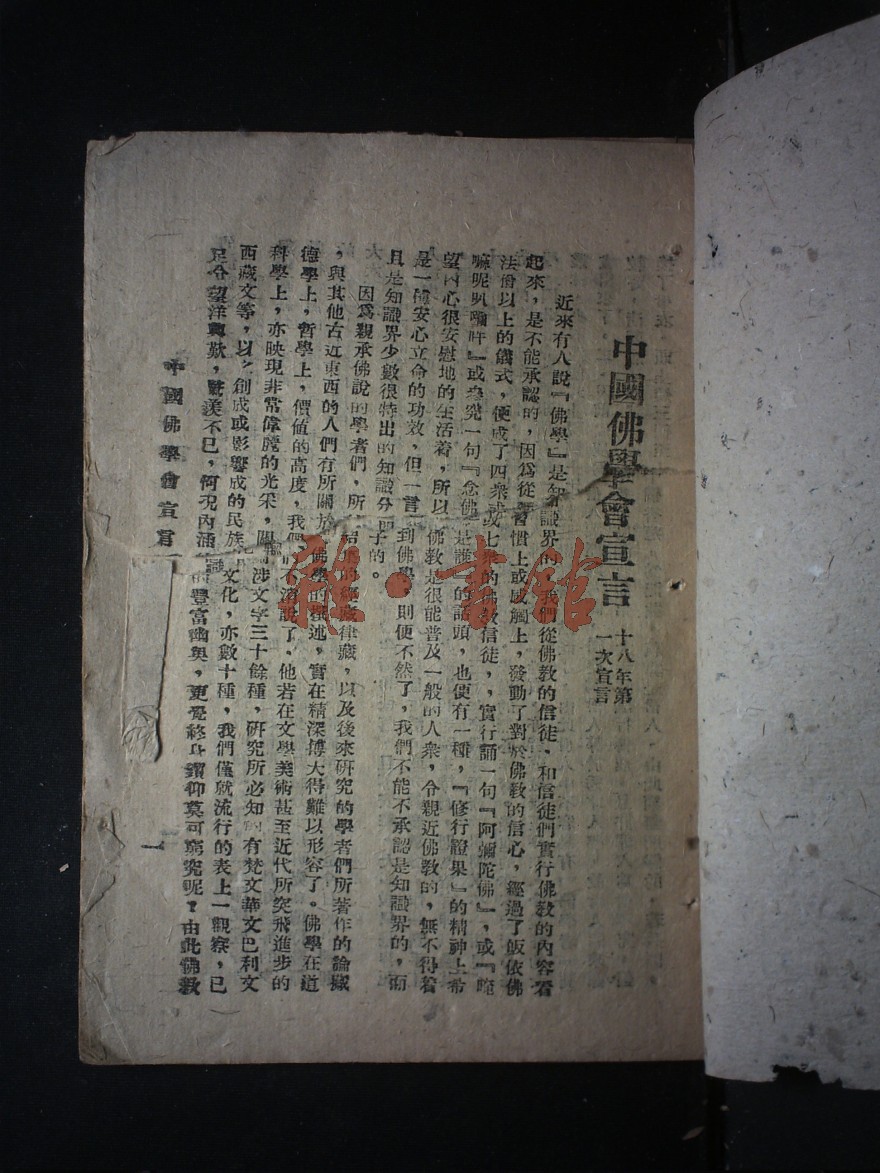 中國佛學會宣言
十八年第
一次宣言
近來有人說『佛學』是知識界的，我們從佛教的信徒，和信徒們實行佛教的內容看
起來，是不能承認的，因為從習慣上或感觸上，發動了對於佛教的信心，經過了皈依佛
法僧以上的儀式，便成了四衆或七衆的佛教信徒，，實行誦一句『阿彌陀佛』，或『唵
嘛呢叭吽』或參究一句『念佛是誰』的話頭，也便有一種，『修行證果』的精神上希
望內心很安慰地的生活着，所以佛教是很能普及一般的人衆，令親近佛教的，無不得着
是一種安心立命的功效，但一言到佛學，則便不然了，我們不能不承認是知識界的，而
且是知識界少數很特出的知識分子的。
因為親承佛說的學者們，所結集的經藏律藏，以及後來研究的學者們所著作的論藏
，與其他古近東西的人們有所關於佛學的撰述，實在精深博大得難以形容了。佛學在道
德學上，哲學上，價値的高度，我們不消說了，他若在文學美術甚至近代所突飛進步的
科學上，亦映現非常偉麗的光采，關涉文字三十餘種，研究所必知的有梵文華文巴利文
西藏文等，以之創成或影響成的民族文化，亦數十種，我們僅就流行的表上一觀察，已
足令望洋興歎，驚羨不已，何況內涵的豐富幽奧，更覺終身鑽仰莫可窮究呢？由此佛教
中國佛學會宣言
一
雜·書館